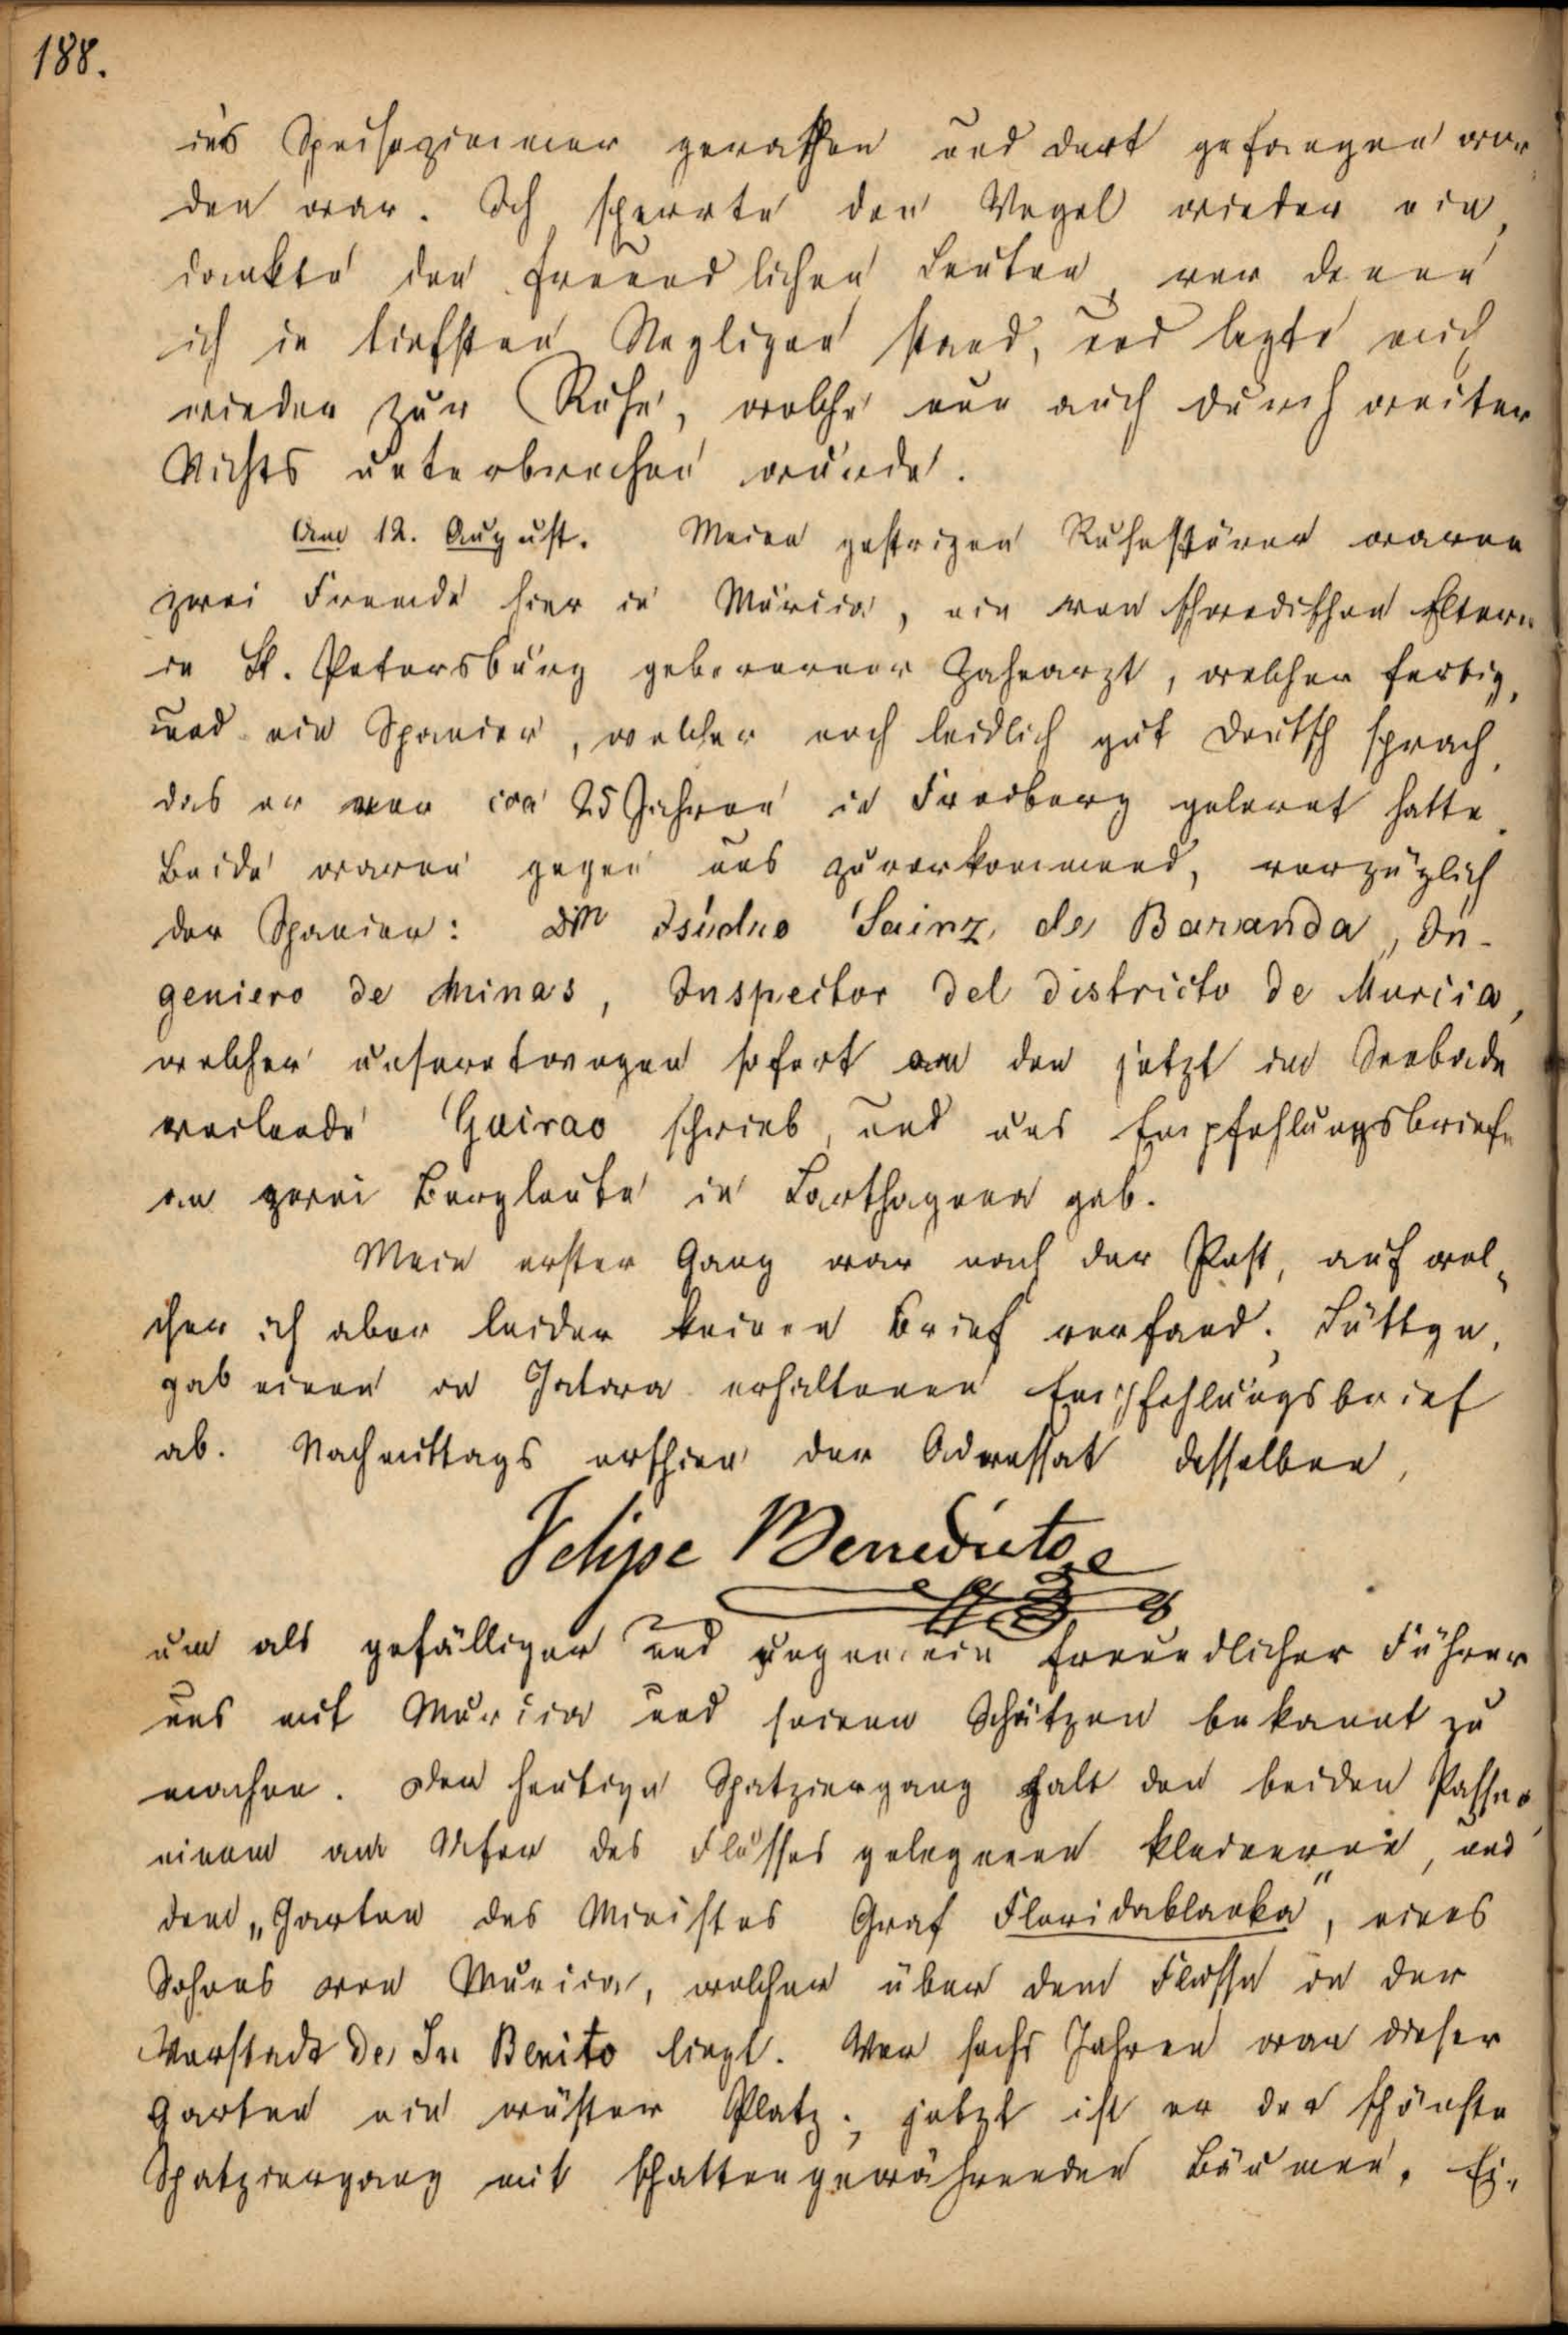 188.
ins Speisezimmer gerathen und dort gefangen wor-
den war. Ich sperrte den Vogel wieder ein,
dankte den freundlichen Leuten, vor denen
ich in tiefsten Negligee stand, und legte mich
wieder zur Ruhe, welche nun auch durch weiter
Nichts unterbrochen wurde.
Am 12. August. Meine gestrigen Ruhestörer waren
zwei Fremde hier in Murcia, ein von schwedischen Eltern
in St. Petersburg geborener Zahnarzt, welcher fertig,
und ein Spanier, welcher noch leidlich gut deutsch sprach,
das er vor cca 25 Jahren in Freiberg gelernt hatte.
Beide waren gegen uns zuvorkommend, vorzüglich
der Spanier: Don Isidro Sainz de Baranda, In-
geniero de Minas, Inspector del districto de Murcia,
welcher unseretwegen sofort an den jetzt im Seebade
weilende Guirao schrieb, und uns Empfehlungsbriefe
an zwei Bergleute in Carthagena gab.
Mein erster Gang war nach der Post, auf wel-
cher ich aber leider keinen Brief vorfand; Lüttge.
gab einen in Jativa erhaltenen Empfehlungsbrief
ab. Nachmittags erschien der Adressat desselben,
Felipe Benedicto
um als gefälliger und ungemein freundlicher Führer
uns mit Murcia und seinen Schätzen bekannt zu
machen. Der heutige Spatziergang galt den beiden Passeos
einem am Ufer des Flusses gelegenen kleineren, und
dem „Garten des Ministes Graf Floridablanka", eines
Sohnes von Murcia, welcher über dem Flusse in der
Vorstadt de Sn Benito liegt. Vor sechs Jahren war dieser
Garten ein wüster Platz; jetzt ist er der schönste
Spatziergang mit schattengewährenden Bäumen. Ei-